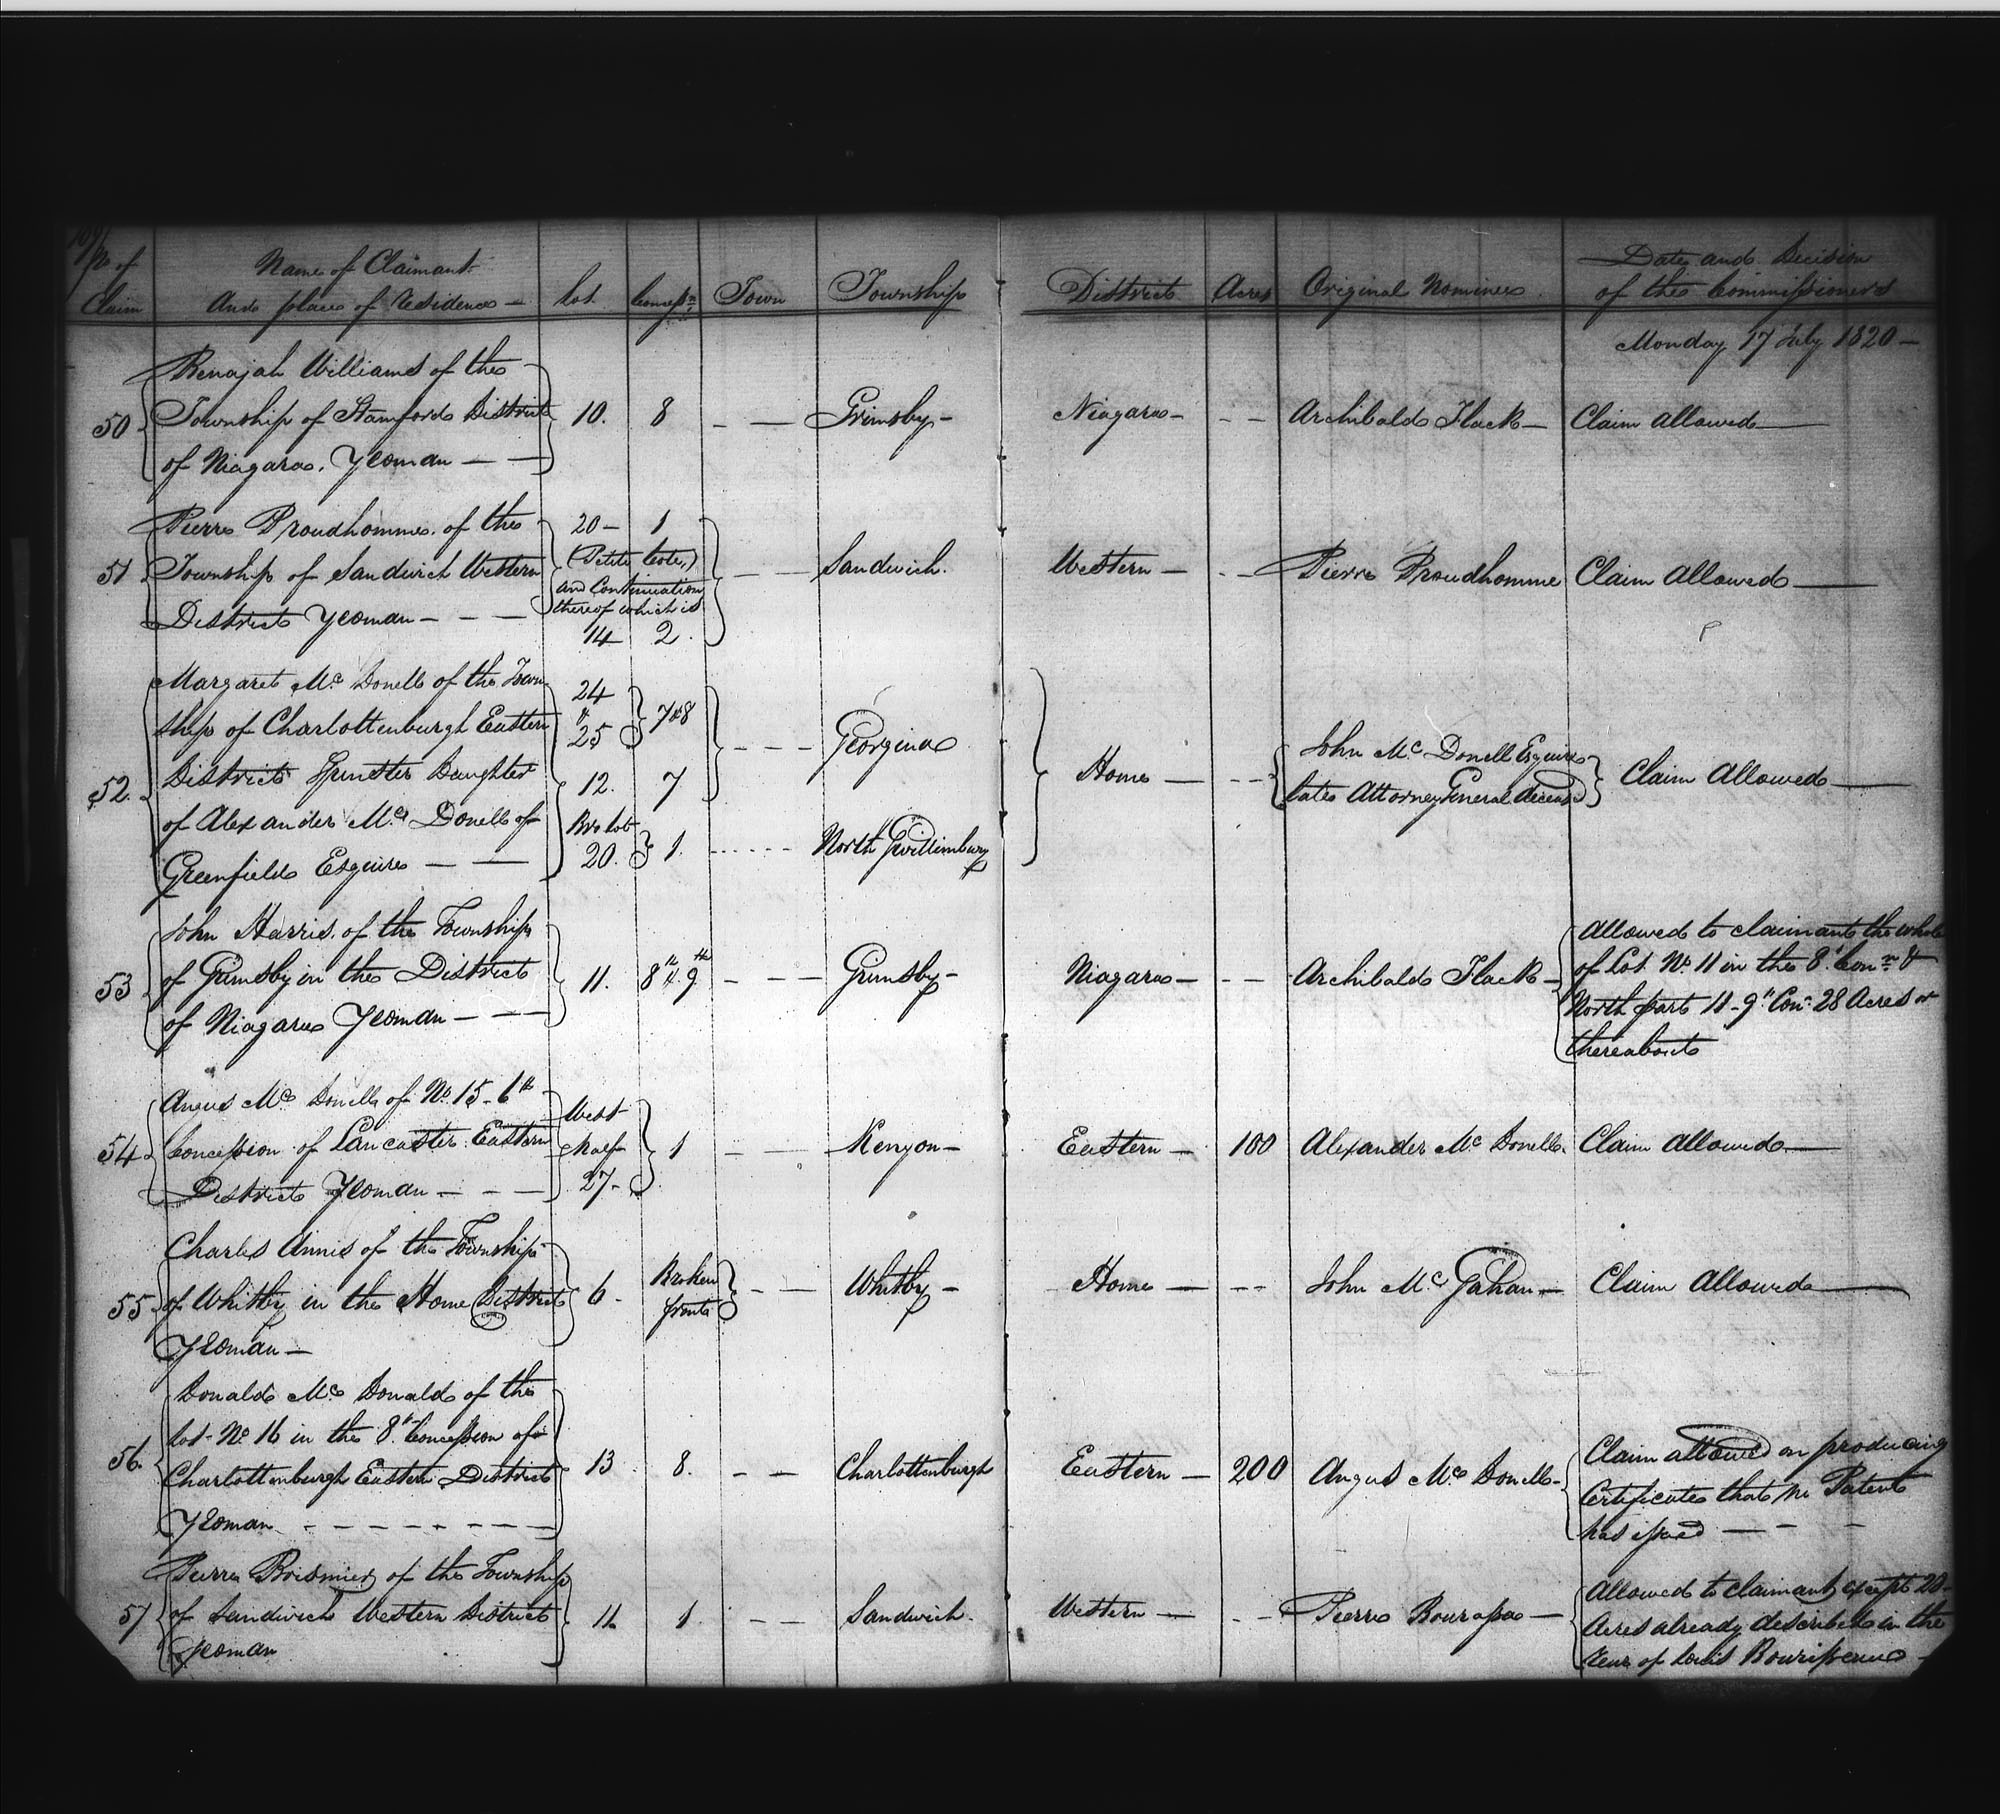 No of Claim | Name of Claimant And place of residence — | Lot | Concessn. | Town | Township | District | Acres | Original Nominee | Date and Decision of the Commissioners
Monday 17 July 1820 —
50 Benajah Williams of the
Township of Stamford District
of Niagara. Yeoman — — | 10. | 8 | — — | Grimsby — | Niagara — | — — | Archibald Flack — | Claim Allowed —
51 Pierre Proudhomme of the
Township of Sandwich Western
District Yeoman — — —
20 — 1
(Petite Cote,)
and Continuation
thereof which is
14 2. | — — | Sandwich. | Western — | — — | Pierre Proudhomme | Claim Allowed —
52. Margaret Mc Donell of the Town
ship of Charlottenburgh Eastern
District Spinster Daughter
of Alexander Mc Donell of
Greenfield Esquire — —
24
&
25 | 7 & 8
12. | 7 | — — — | Georgina
Bro Lot
20. | 1. | ...... | North Gwillimbury
Home — | — — | John Mc Donell Esquire
late Attorney General deceasd | Claim Allowed —
53 John Harris. of the Township
of Grimsby in the District
of Niagara Yeoman — — | 11. | 8th & 9th | — — — | Grimsby — | Niagara — | — — | Archibald Flack —
Allowed to claimant the whole
of Lot No. 11 in the 8th Conn. &
North part 11 - 9th Con. 28 Acres or
thereabouts
54 Angus Mc Donell of No. 15 - 6th
Concession of Lancaster Eastern
District Yeoman — — —
West
Half
27 - | 1 | — — | Kenyon — | Eastern — | 100 | Alexander Mc Donell. | Claim Allowed —
55 Charles Annis of the Township
of Whitby in the Home District
Yeoman — | 6 - | Broken
front | — — | Whitby — | Home — | — — | John Mc Gahan — | Claim Allowed —
56. Donald Mc Donald of the
Lot No. 16 in the 8th Concession of
Charlottenburgh Eastern District
Yeoman — — — — | 13 | 8. | — — | Charlottenburgh | Eastern — | 200 | Angus Mc Donell —
Claim allowed on producing
Certificate that no Patent
has issued — — —
57 Pierre of the Township
of Sandwich Western District
Yeoman | 11. | 1 | — — | Sandwich. | Western — | — — | Pierre —
Allowed to claimant except 20
Acres already described in the
rear of Louis